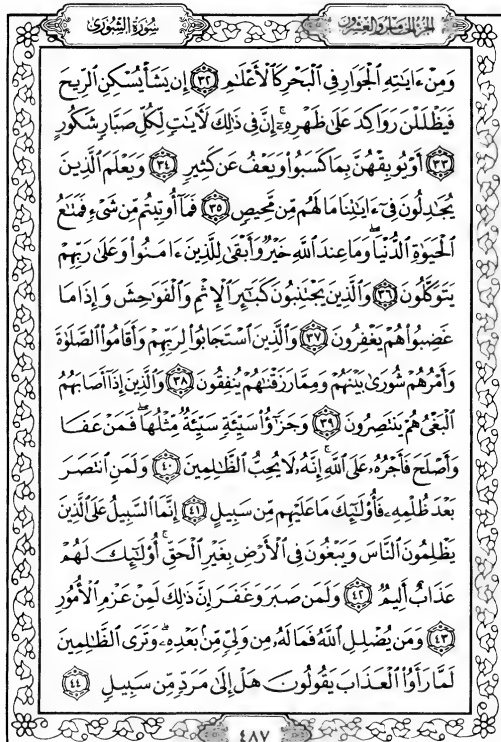 سُورَةُ الشُّورَىٰ
الجزء الخامس والعشرون
وَمِنْ ءَايَٰتِهِ ٱلْجَوَارِ فِى ٱلْبَحْرِ كَٱلْأَعْلَٰمِ ٣٢ إِن يَشَأْ يُسْكِنِ ٱلرِّيحَ
فَيَظْلَلْنَ رَوَاكِدَ عَلَىٰ ظَهْرِهِۦٓ ۚ إِنَّ فِى ذَٰلِكَ لَءَايَٰتٍ لِّكُلِّ صَبَّارٍ شَكُورٍ
٣٣ أَوْ يُوبِقْهُنَّ بِمَا كَسَبُوا۟ وَيَعْفُ عَن كَثِيرٍ ٣٤ وَيَعْلَمَ ٱلَّذِينَ
يُجَٰدِلُونَ فِىٓ ءَايَٰتِنَا مَا لَهُم مِّن مَّحِيصٍ ٣٥ فَمَآ أُوتِيتُم مِّن شَىْءٍ فَمَتَٰعُ
ٱلْحَيَوٰةِ ٱلدُّنْيَا ۖ وَمَا عِندَ ٱللَّهِ خَيْرٌ وَأَبْقَىٰ لِلَّذِينَ ءَامَنُوا۟ وَعَلَىٰ رَبِّهِمْ
يَتَوَكَّلُونَ ٣٦ وَٱلَّذِينَ يَجْتَنِبُونَ كَبَٰٓئِرَ ٱلْإِثْمِ وَٱلْفَوَٰحِشَ وَإِذَا مَا
غَضِبُوا۟ هُمْ يَغْفِرُونَ ٣٧ وَٱلَّذِينَ ٱسْتَجَابُوا۟ لِرَبِّهِمْ وَأَقَامُوا۟ ٱلصَّلَوٰةَ
وَأَمْرُهُمْ شُورَىٰ بَيْنَهُمْ وَمِمَّا رَزَقْنَٰهُمْ يُنفِقُونَ ٣٨ وَٱلَّذِينَ إِذَآ أَصَابَهُمُ
ٱلْبَغْىُ هُمْ يَنتَصِرُونَ ٣٩ وَجَزَٰٓؤُا۟ سَيِّئَةٍ سَيِّئَةٌ مِّثْلُهَا ۖ فَمَنْ عَفَا
وَأَصْلَحَ فَأَجْرُهُۥ عَلَى ٱللَّهِ ۚ إِنَّهُۥ لَا يُحِبُّ ٱلظَّٰلِمِينَ ٤٠ وَلَمَنِ ٱنتَصَرَ
بَعْدَ ظُلْمِهِۦ فَأُو۟لَٰٓئِكَ مَا عَلَيْهِم مِّن سَبِيلٍ ٤١ إِنَّمَا ٱلسَّبِيلُ عَلَى ٱلَّذِينَ
يَظْلِمُونَ ٱلنَّاسَ وَيَبْغُونَ فِى ٱلْأَرْضِ بِغَيْرِ ٱلْحَقِّ ۚ أُو۟لَٰٓئِكَ لَهُمْ
عَذَابٌ أَلِيمٌ ٤٢ وَلَمَن صَبَرَ وَغَفَرَ إِنَّ ذَٰلِكَ لَمِنْ عَزْمِ ٱلْأُمُورِ
٤٣ وَمَن يُضْلِلِ ٱللَّهُ فَمَا لَهُۥ مِن وَلِىٍّ مِّنۢ بَعْدِهِۦ ۗ وَتَرَى ٱلظَّٰلِمِينَ
لَمَّا رَأَوُا۟ ٱلْعَذَابَ يَقُولُونَ هَلْ إِلَىٰ مَرَدٍّ مِّن سَبِيلٍ ٤٤
٤٨٧